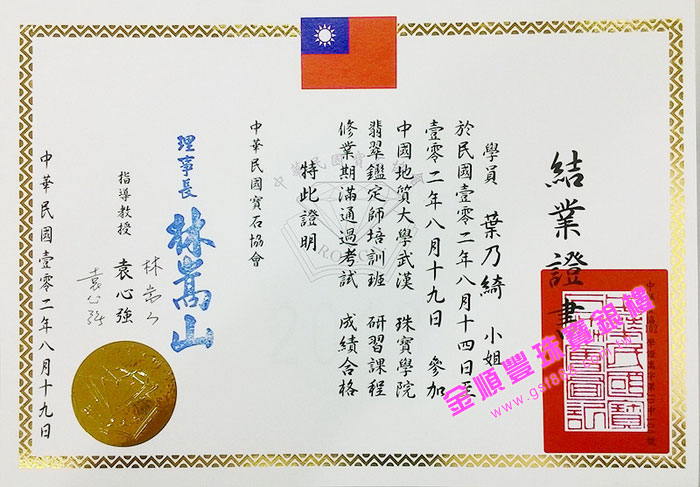 結業證書
學員 葉乃綺 小姐
於民國壹零二年八月十四日至
壹零二年八月十九日 參加
中國地質大學武漢 珠寶學院
翡翠鑑定師培訓班 研習課程
修業期滿通過考試 成績合格
特此證明
中華民國寶石協會
理事長 林嵩山
指導教授 袁心強
林嵩山
袁心強
中華民國壹零二年八月十九日
金順豐珠寶銀樓